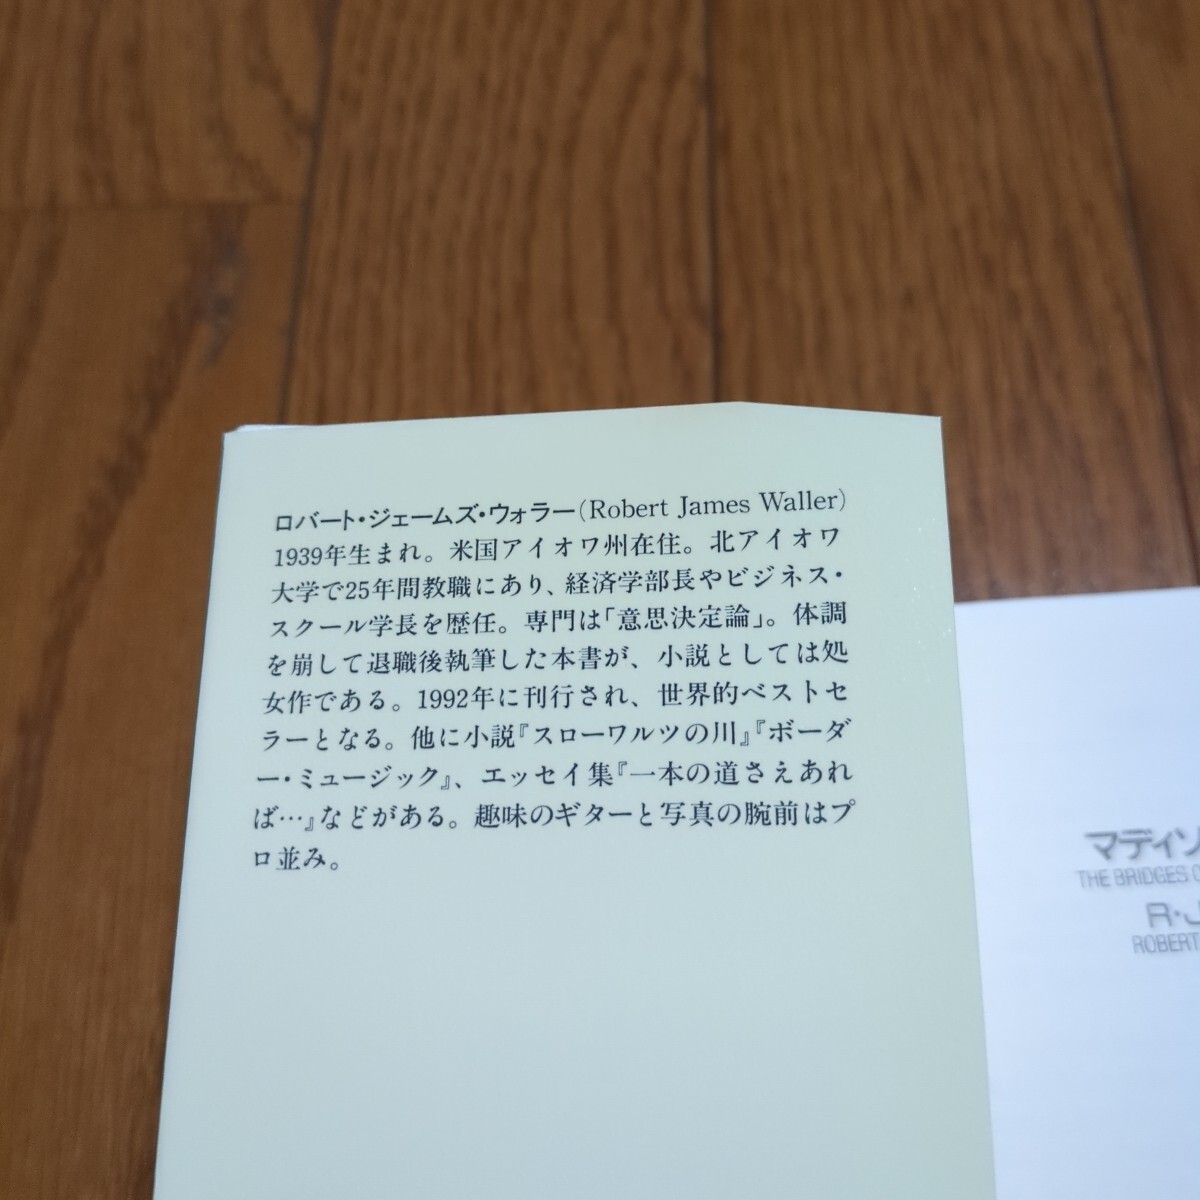 ロバート・ジェームズ・ウォラー(Robert James Waller)
1939年生まれ。米国アイオワ州在住。北アイオワ
大学で25年間教職にあり、経済学部長やビジネス・
スクール学長を歴任。専門は「意思決定論」。体調
を崩して退職後執筆した本書が、小説としては処
女作である。1992年に刊行され、世界的ベストセ
ラーとなる。他に小説『スローワルツの川』『ボーダ
ー・ミュージック』、エッセイ集『一本の道さえあれ
ば…』などがある。趣味のギターと写真の腕前はプ
ロ並み。
マディソ
THE BRIDGES O
R・J
ROBERT